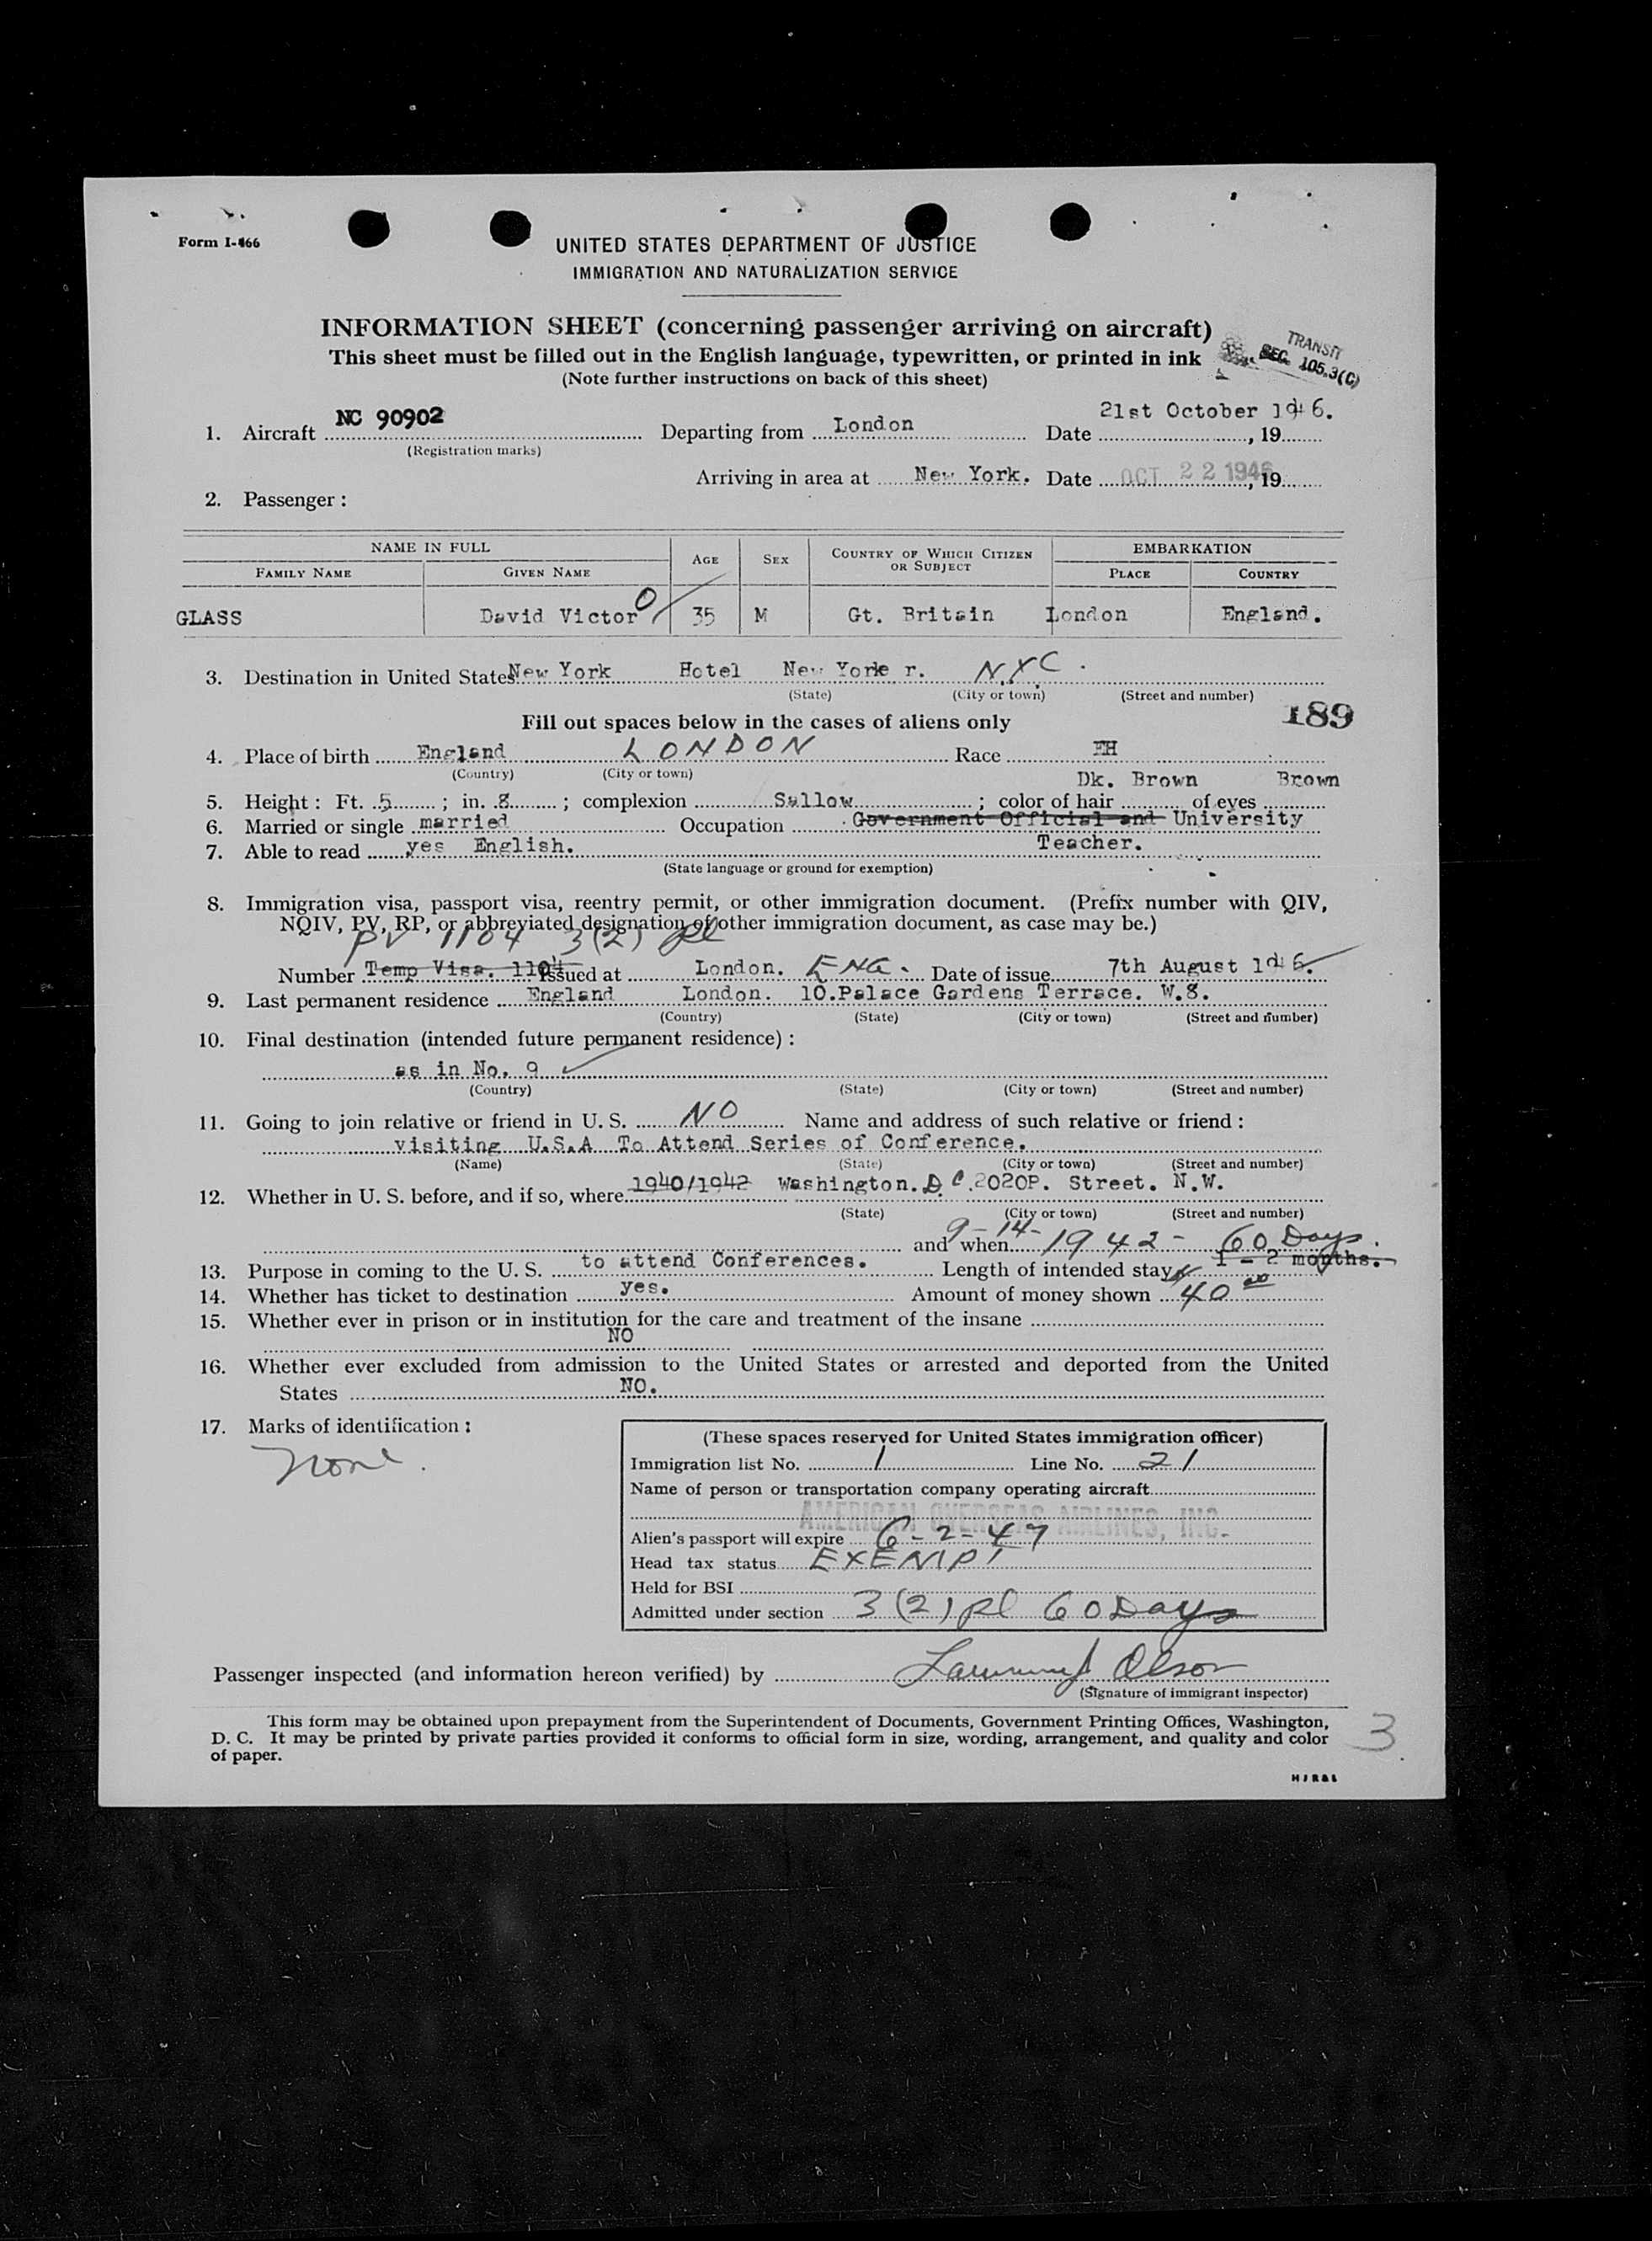 Form I-466
UNITED STATES DEPARTMENT OF JUSTICE
IMMIGRATION AND NATURALIZATION SERVICE
INFORMATION SHEET (concerning passenger arriving on aircraft)
This sheet must be filled out in the English language, typewritten, or printed in ink
(Note further instructions on back of this sheet)
TRANSIT
SEC. 105.3(C)
1. Aircraft NC 90902 Departing from London Date 21st October 1946. , 19
(Registration marks)
Arriving in area at New York. Date OCT 22 1946, 19
2. Passenger:
NAME IN FULL AGE SEX COUNTRY OF WHICH CITIZEN OR SUBJECT EMBARKATION
FAMILY NAME GIVEN NAME PLACE COUNTRY
GLASS David Victor 0 35 M Gt. Britain London England.
3. Destination in United States New York Hotel New Yorker. N.Y.C.
(State) (City or town) (Street and number)
189
Fill out spaces below in the cases of aliens only
4. Place of birth England LONDON Race EH
(Country) (City or town)
Dk. Brown Brown
5. Height: Ft. 5 ; in. 8 ; complexion Sallow ; color of hair of eyes
6. Married or single married Occupation Government Official and University
7. Able to read yes English. Teacher.
(State language or ground for exemption)
8. Immigration visa, passport visa, reentry permit, or other immigration document. (Prefix number with QIV,
NQIV, PV, RP, or abbreviated designation of other immigration document, as case may be.)
PV 1104 3(2) pl
Number Temp Visa. 1104 Issued at London. ENG. Date of issue 7th August 1946.
9. Last permanent residence England London. 10.Palace Gardens Terrace. W.8.
(Country) (State) (City or town) (Street and number)
10. Final destination (intended future permanent residence):
as in No. 9
(Country) (State) (City or town) (Street and number)
11. Going to join relative or friend in U. S. NO Name and address of such relative or friend:
visiting U.S.A To Attend Series of Conference.
(Name) (State) (City or town) (Street and number)
12. Whether in U. S. before, and if so, where 1940/1942 Washington. D C. 2020P. Street. N.W.
(State) (City or town) (Street and number)
and when 9-14-1942 - 60 Days.
13. Purpose in coming to the U. S. to attend Conferences. Length of intended stay 1 - 2 months.
14. Whether has ticket to destination yes. Amount of money shown 40 00
15. Whether ever in prison or in institution for the care and treatment of the insane
NO
16. Whether ever excluded from admission to the United States or arrested and deported from the United
States NO.
17. Marks of identification:
None.
(These spaces reserved for United States immigration officer)
Immigration list No. 1 Line No. 21
Name of person or transportation company operating aircraft
AMERICAN OVERSEAS AIRLINES, INC.
Alien's passport will expire 6-2-47
Head tax status EXEMPT
Held for BSI
Admitted under section 3(2) pl 60 Days
Passenger inspected (and information hereon verified) by Olson
(Signature of immigrant inspector)
This form may be obtained upon prepayment from the Superintendent of Documents, Government Printing Offices, Washington,
D. C. It may be printed by private parties provided it conforms to official form in size, wording, arrangement, and quality and color
of paper.
3